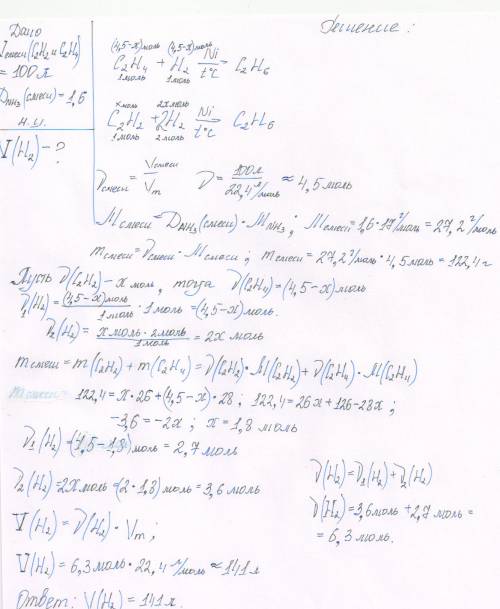 Дано
Vсмеси(C2H2 и C2H4)
= 100 л
DNH3(смеси) = 1,6
н.у.
V(H2) - ?
Решение:
(4,5-x)моль (4,5-x)моль
C2H4 + H2 Ni→ t°C C2H6
1моль 1моль
xмоль 2xмоль
C2H2 + 2H2 Ni→ t°C C2H6
1моль 2моль
νсмеси = Vсмеси/Vm ν = 100л/22,4 л/моль ≈ 4,5 моль
Mсмеси = DNH3(смеси) · MNH3; Mсмеси = 1,6 · 17 г/моль = 27,2 г/моль
mсмеси = νсмеси · Mсмеси; mсмеси = 27,2 г/моль · 4,5 моль = 122,4 г
Пусть ν(C2H2) - x моль, тогда ν(C2H4) = (4,5-x) моль
ν1(H2) = (4,5-x)моль/1моль · 1 моль = (4,5-x) моль.
ν2(H2) = xмоль · 2моль/1моль = 2x моль
mсмеси = m(C2H2) + m(C2H4) = ν(C2H2) · M(C2H2) + ν(C2H4) · M(C2H4)
mсмеси = 122,4 = x · 26 + (4,5-x) · 28; 122,4 = 26x + 126 - 28x;
-3,6 = -2x; x = 1,8 моль
ν1(H2) = (4,5-1,8) моль = 2,7 моль
ν2(H2) = 2x моль = (2 · 1,8) моль = 3,6 моль
ν(H2) = ν1(H2) + ν2(H2)
ν(H2) = 3,6 моль + 2,7 моль =
= 6,3 моль.
V(H2) = ν(H2) · Vm;
V(H2) = 6,3 моль · 22,4 л/моль ≈ 141 л
Ответ: V(H2) = 141 л.